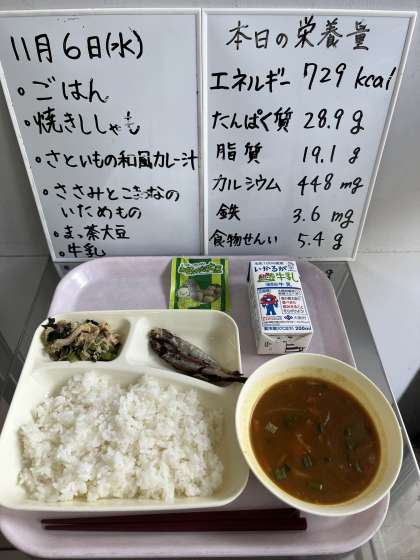 11月6日(水)
・ごはん
・焼きししゃも
・さといもの和風カレー汁
・ささみとこまつなの
いためもの
・まっ茶大豆
・牛乳
本日の栄養量
エネルギー 729 kcal
たんぱく質 28.9 g
脂質 19.1 g
カルシウム 448 mg
鉄 3.6 mg
食物せんい 5.4 g
いかるが
牛乳
200ml